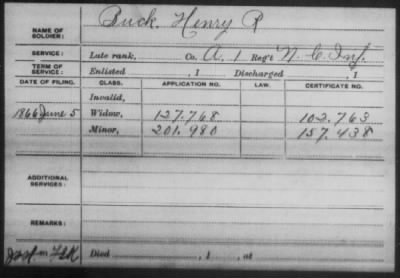 NAME OF SOLDIER: Buck, Henry R
SERVICE: Late rank, Co. A. 1 Reg't N. C. Inf.
TERM OF SERVICE: Enlisted , 1 Discharged , 1
DATE OF FILING. CLASS. APPLICATION NO. LAW. CERTIFICATE NO.
Invalid,
1866 June 5 Widow, 127.768 102.763
Minor, 201.980 157.438
ADDITIONAL SERVICES:
REMARKS:
Died , 1 , at